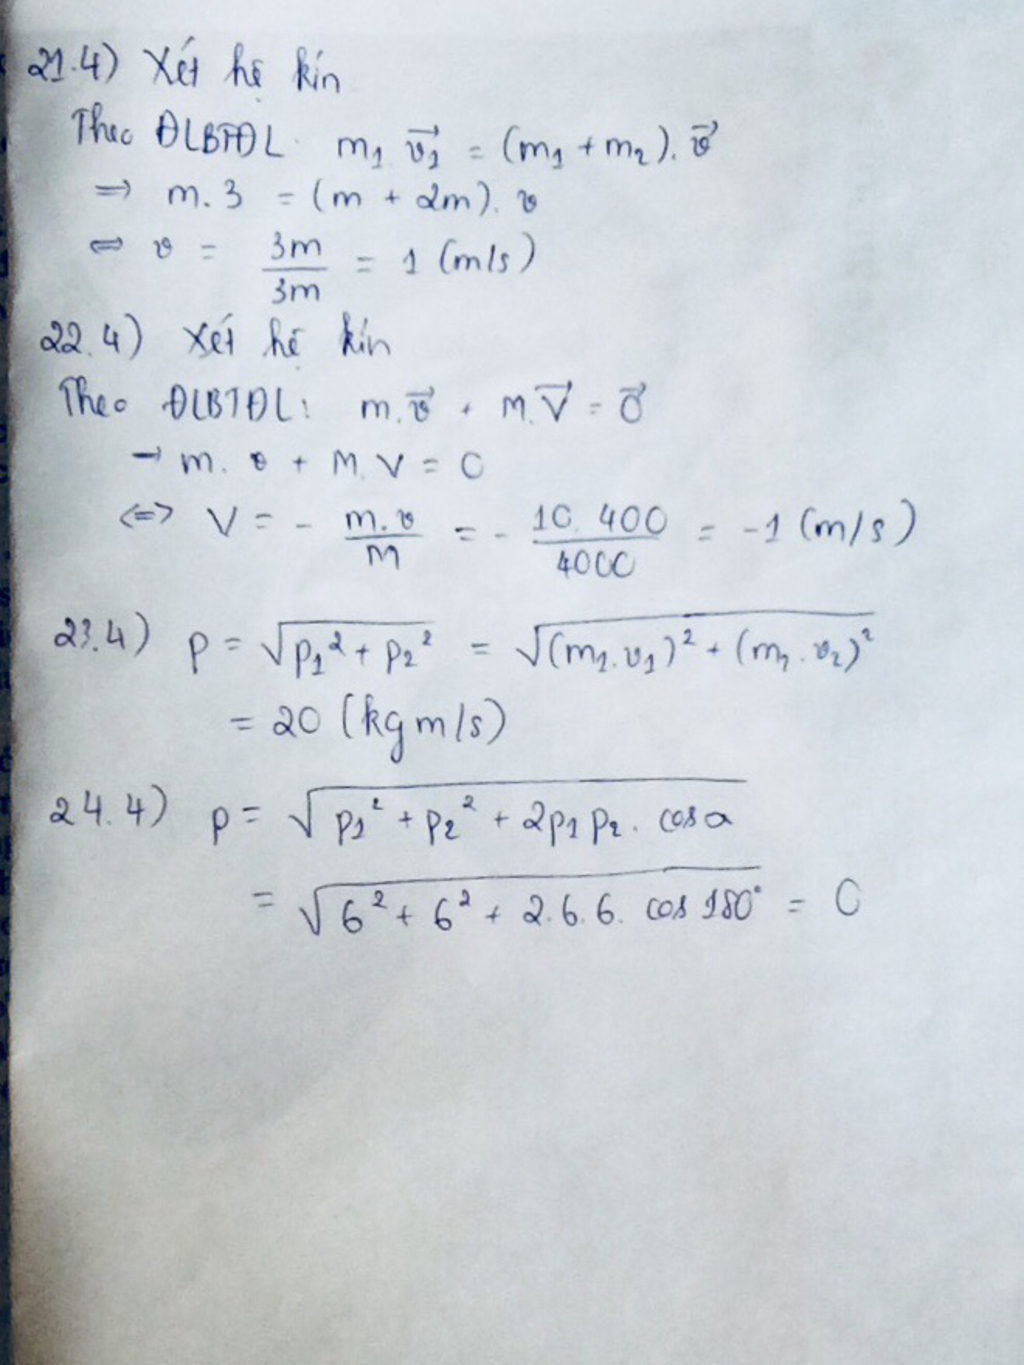 21.4) Xét hệ kín
Theo ĐLBTĐL: m₁ v₁⃗ = (m₁ + m₂). v⃗
=> m. 3 = (m + 2m). v
<=> v = 3m/3m = 1 (m/s)
22.4) Xét hệ kín
Theo ĐLBTĐL: m. v⃗ + M. V⃗ = 0⃗
→ m. v + M. V = 0
<=> V = - m.v/M = - 10. 400/4000 = -1 (m/s)
23.4) p = √(p₁² + p₂²) = √((m₁.v₁)² + (m₂.v₂)²)
= 20 (kg m/s)
24.4) p = √(p₁² + p₂² + 2p₁p₂. cos α)
= √(6² + 6² + 2.6.6. cos 180°) = 0